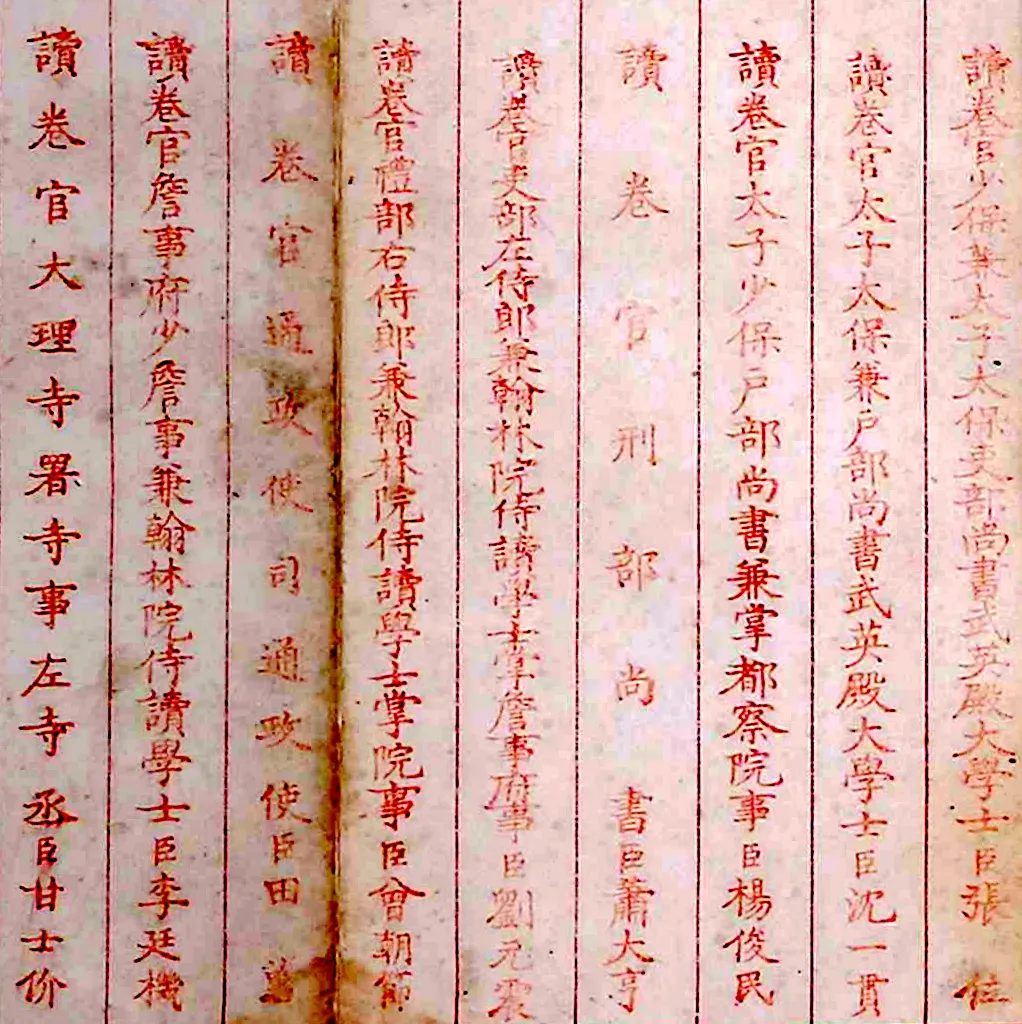 讀卷官少保兼太子太保吏部尚書武英殿大學士臣張位
讀卷官太子太保兼戶部尚書武英殿大學士臣沈一貫
讀卷官太子少保戶部尚書兼掌都察院事臣楊俊民
讀卷官刑部尚書臣蕭大亨
讀卷官吏部左侍郎兼翰林院侍讀學士掌詹事府事臣劉元震
讀卷官禮部右侍郎兼翰林院侍讀學士掌院事臣曾朝節
讀卷官通政使司通政使臣田
讀卷官詹事府少詹事兼翰林院侍讀學士臣李廷機
讀卷官大理寺署寺事左寺丞臣甘士价